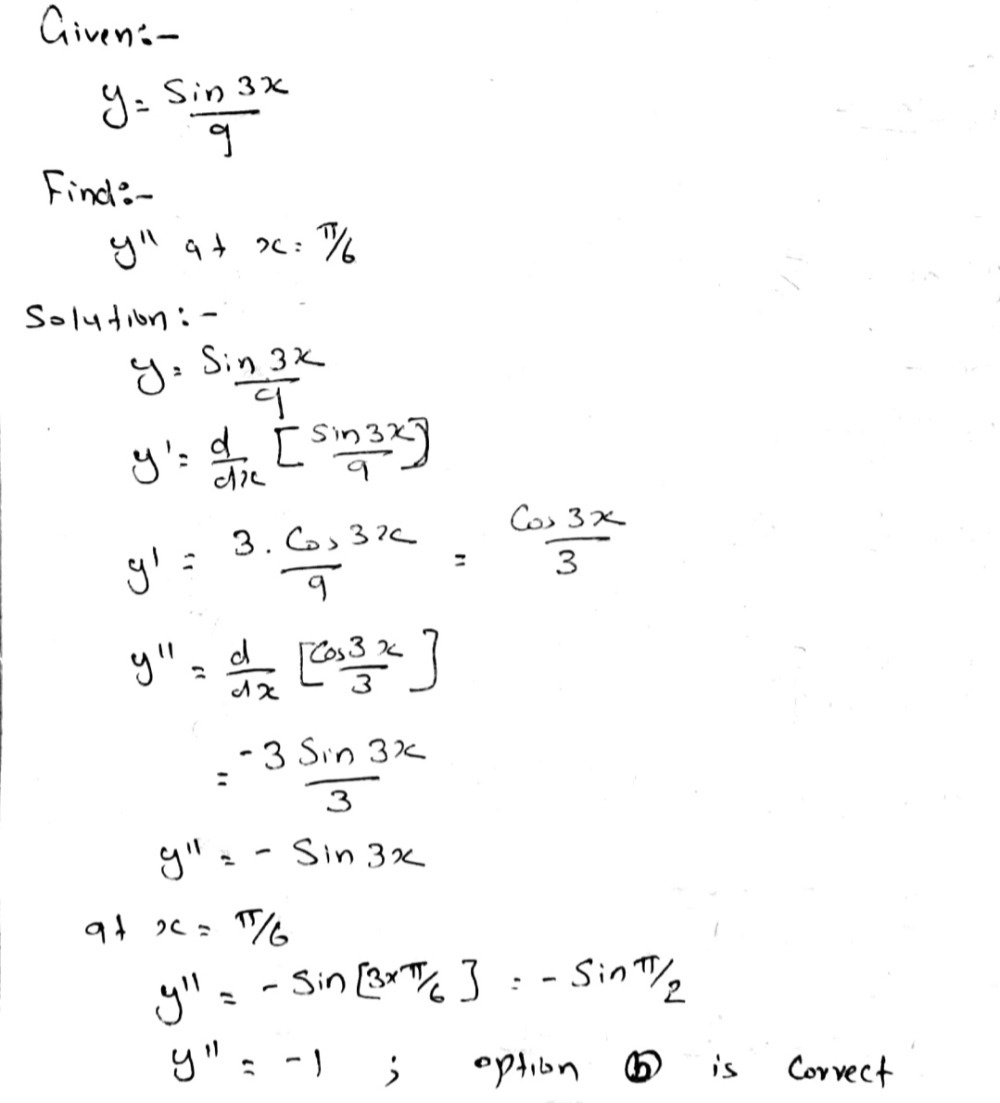 Given:-
y = Sin 3x / 9
Find:-
y" at x = π/6
Solution:-
y = Sin 3x / 9
y' = d/dx [Sin 3x / 9]
y' = 3. Cos 3x / 9 = Cos 3x / 3
y" = d/dx [Cos 3x / 3]
= -3 Sin 3x / 3
y" = - Sin 3x
at x = π/6
y" = - Sin [3×π/6] = - Sin π/2
y" = -1 ; option ⓑ is Correct